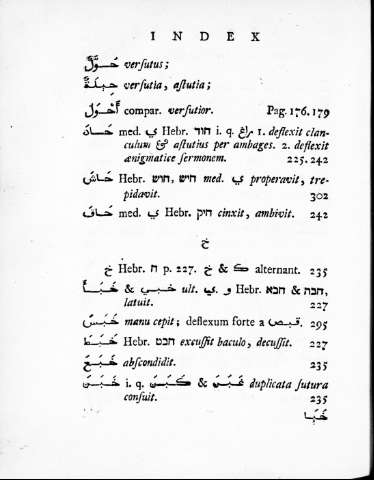 INDEX
حُوَّلٌ versutus;
حِيلَةٌ versutia, astutia;
أَحْوَل compar. versutior. Pag. 176. 179
حَادَ med. ي Hebr. חוד i. q. راغ 1. deflexit clan-
culum & astutius per ambages. 2. deflexit
ænigmatice sermonem. 225. 242
حَاشَ Hebr. חיש, חוש med. ي properavit, tre-
pidavit. 302
حَافَ med. ي Hebr. חיק cinxit, ambivit. 242
خ
خ Hebr. ח p. 227. خ & ك alternant. 235
خَبَأَ & خبى ult. ي. و Hebr. חבא & חבה,
latuit. 227
خَبَسَ manu cepit; deflexum forte a قبص. 295
خَبَطَ Hebr. חבט excussit baculo, decussit. 227
خَبَعَ abscondidit. 235
خَبَنَ i. q. كَبَنَ & غَبَنَ duplicata sutura
consuit. 235
خَبَا